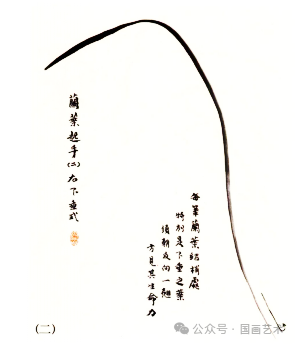 蘭葉起手(二)右下垂式
每筆蘭葉結梢處
特別是下垂之葉
須朝反向一翹
方見其生命力
(二)
公众号 · 国画艺术